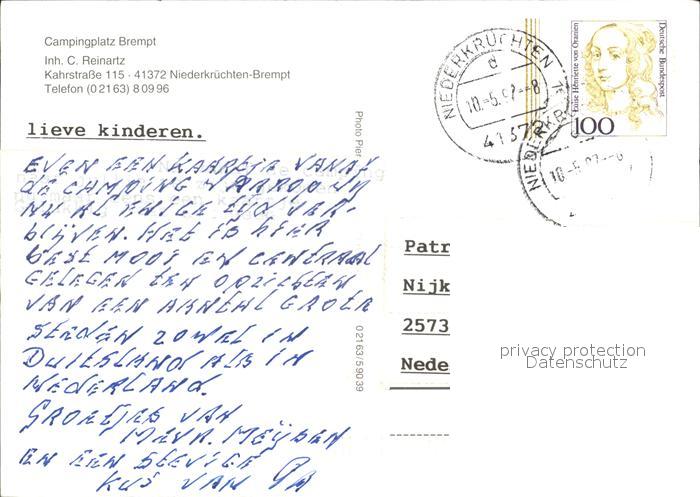 Campingplatz Brempt
Inh. C. Reinartz
Kahrstraße 115 · 41372 Niederkrüchten-Brempt
Telefon (02163) 80996
lieve kinderen.
EVEN EEN KAARTJE VANAF
DE CAMPING WAAROP WIJ
NU AL ENIGE TIJD VER-
BLIJVEN. HET IS HIER
BEST MOOI EN CENTRAAL
GELEGEN TEN OPZICHTEN
VAN EEN AANTAL GROTE
STEDEN ZOWEL IN
DUITSLAND ALS IN
NEDERLAND.
GROETJES VAN
MEVR. MEIJDEN
EN EEN STEVIGE
KUS VAN PA
Photo Pier
02163/59039
NIEDERKRÜCHTEN
d
10.-5.97--8
41372
NIEDERKR
Luise Henriette von Oranien
Deutsche Bundespost
100
Patr
Nijk
2573
Nede
privacy protection
Datenschutz